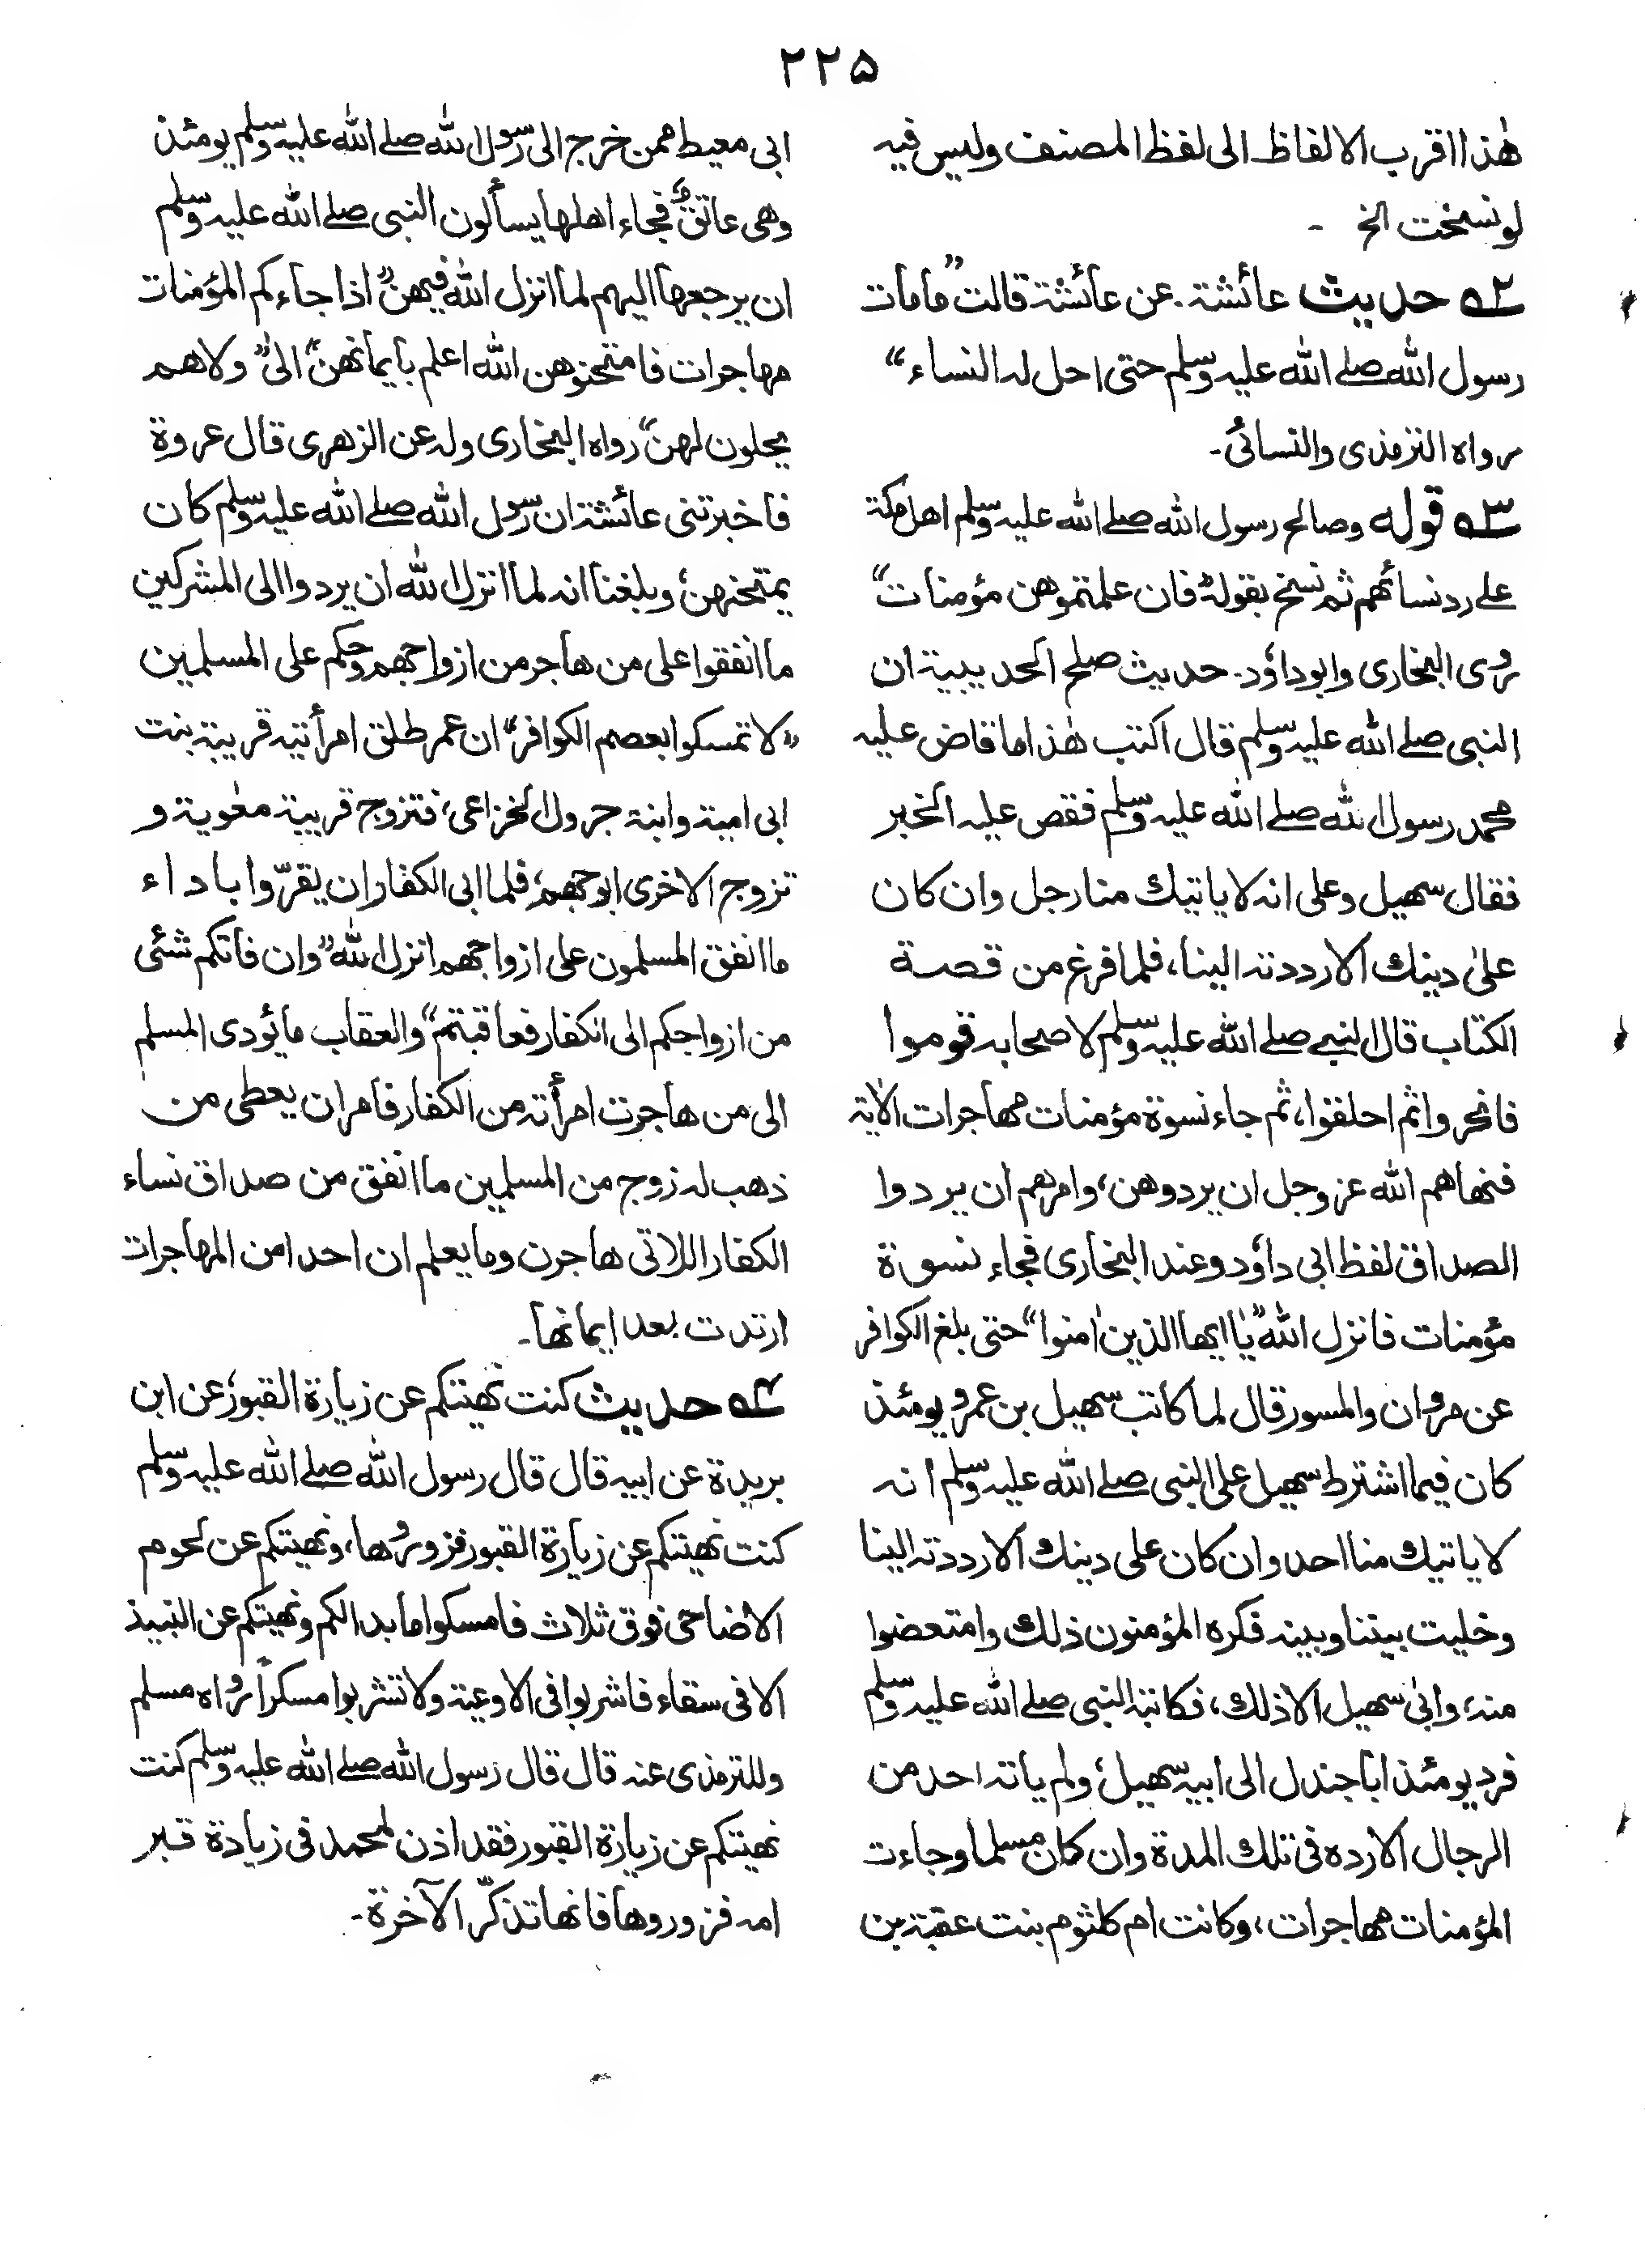 ۲۲۵
هٰذا اقرب الالفاظ الى لفظ المصنف وليس فيه
لو نسخت الخ -
۵۲ حديث عائشة. عن عائشة قالت "ما مات
رسول الله صلے الله عليه وسلم حتى احل له النساء"
رواه الترمذى والنسائى-
۵۳ قوله وصالح رسول الله صلے الله عليه وسلم اهل مكة
علے رد نسائهم ثم نسخ بقوله فان علمتموهن مؤمنات"
روى البخارى وابو داؤد. حديث صلح الحديبية ان
النبى صلے الله عليه وسلم قال اكتب هٰذا ما قاض عليه
محمد رسول الله صلے الله عليه وسلم فقص عليه الخبر
فقال سهيل وعلى انه لا ياتيك منا رجل وان كان
علىٰ دينك الا رددته الينا، فلما فرغ من قصة
الكتاب قال النبے صلے الله عليه وسلم لاصحابه قوموا
فانحروا ثم احلقوا، ثم جاء نسوة مؤمنات مهاجرات الاٰية
فنهاهم الله عز وجل ان يردوهن، وامرهم ان يردوا
الصداق لفظ ابى داؤد وعند البخارى فجاء نسوة
مؤمنات فانزل الله "يٰا ايها الذين اٰمنوا" حتى بلغ الكوافر
عن مروان والمسور قال لما كاتب سهيل بن عمرو يومئذ
كان فيما اشترط سهيل على النبى صلے الله عليه وسلم انه
لا ياتيك منا احد وان كان على دينك الا رددته الينا
وخليت بيننا وبينه فكره المؤمنون ذلك وامتعضوا
منه، وابىٰ سهيل الا ذلك، فكاتبه النبى صلے الله عليه وسلم
فرد يومئذ ابا جندل الى ابيه سهيل، ولم ياته احد من
الرجال الا رده فى تلك المدة وان كان مسلما وجاءت
المؤمنات مهاجرات، وكانت ام كلثوم بنت عقبة بن
ابى معيط ممن خرج الى رسول الله صلے الله عليه وسلم يومئذ
وهى عاتق، فجاء اهلها يسألون النبى صلے الله عليه وسلم
ان يرجعها اليهم لما انزل الله فيهن "اذا جاءكم المؤمنات
مهاجرات فامتحنوهن الله اعلم بايمانهن" الىٰ "ولا هم
يحلون لهن" رواه البخارى وله عن الزهرى قال عروة
فاخبرتنى عائشة ان رسول الله صلے الله عليه وسلم كان
يمتحنهن، وبلغنا انه لما انزل الله ان يردوا الى المشركين
ما انفقوا على من هاجر من ازواجهم وحكم على المسلمين
"لا تمسكوا بعصم الكوافر" ان عمر طلق امرأتيه قريبة بنت
ابى امية وابنة جرول الخزاعى، فتزوج قريبية معٰوية و
تزوج الاخرى ابوجهم، فلما ابى الكفار ان يقرّوا باداء
ما انفق المسلمون على ازواجهم انزل الله "وان فاتكم شئى
من ازواجكم الى الكفار فعاقبتم" والعقاب ما يؤدى المسلم
الى من هاجرت امرأته من الكفار فامر ان يعطى من
ذهب له زوج من المسلمين ما انفق من صداق نساء
الكفار اللاتى هاجرن وما يعلم ان احدا من المهاجرات
ارتدت بعد ايمانها-
۵۴ حديث كنت نهيتكم عن زيارة القبور، عن ابن
بريدة عن ابيه قال قال رسول الله صلے الله عليه وسلم
كنت نهيتكم عن زيارة القبور فزوروها، ونهيتكم عن لحوم
الاضاحى فوق ثلاث فامسكوا ما بدالكم ونهيتكم عن النبيذ
الا فى سقاء فاشربوا فى الاوعية ولا تشربوا مسكرا رواه مسلم
وللترمذى عنه قال قال رسول الله صلے الله عليه وسلم كنت
نهيتكم عن زيارة القبور فقد اذن لمحمد فى زيادة قبر
امه فزوروها فانها تذكّر الآخرة-